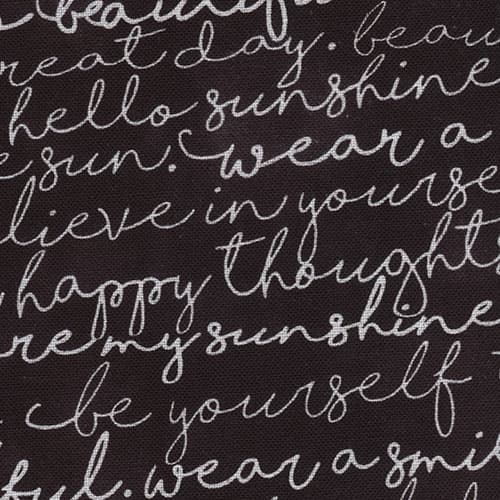 beautiful
reat day. beau
hello sunshine
e sun. wear a
lieve in yourse
happy thoughts
re my sunshine
be yourself
ful. wear a smil